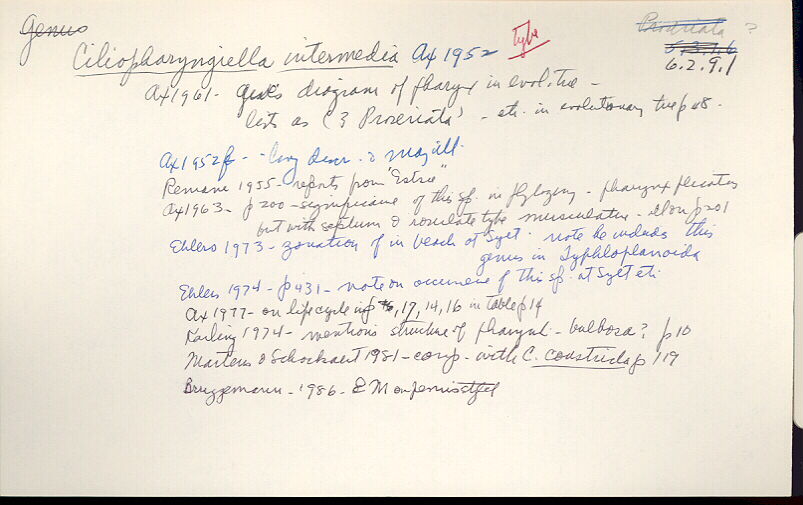 Genus
Proseriata ?
Ciliopharyngiella intermedia Ax 1952 type
6.2.9.1
Ax 1961 - gives diagram of pharyx in evol. tree -
lists as (3 Proseriata) - etc. in evolutionary tree p 48 -
Ax 1952f - long descr. & many ill.
Remane 1955 - reports from "Estrie"
Ax 1963 - p 200 - significance of this sp. in phylogeny - pharynx plicatus
but with septum & rosulate type musculature - ill on p 201
Ehlers 1973 - zonation of in beach at Sylt - note he includes this
genus in Typhloplanoida
Ehlers 1974 - p 431 - note on occurence of this sp. at Sylt etc.
Ax 1977 - on life cycle in p 17, 14, 16 in table p 14
Karling 1974 - mentions structure of pharynx - bulbosa? p 10
Martens & Schockaert 1981 - comp - with C. constricta p 119
Bruggemann - 1986 - EM on penis